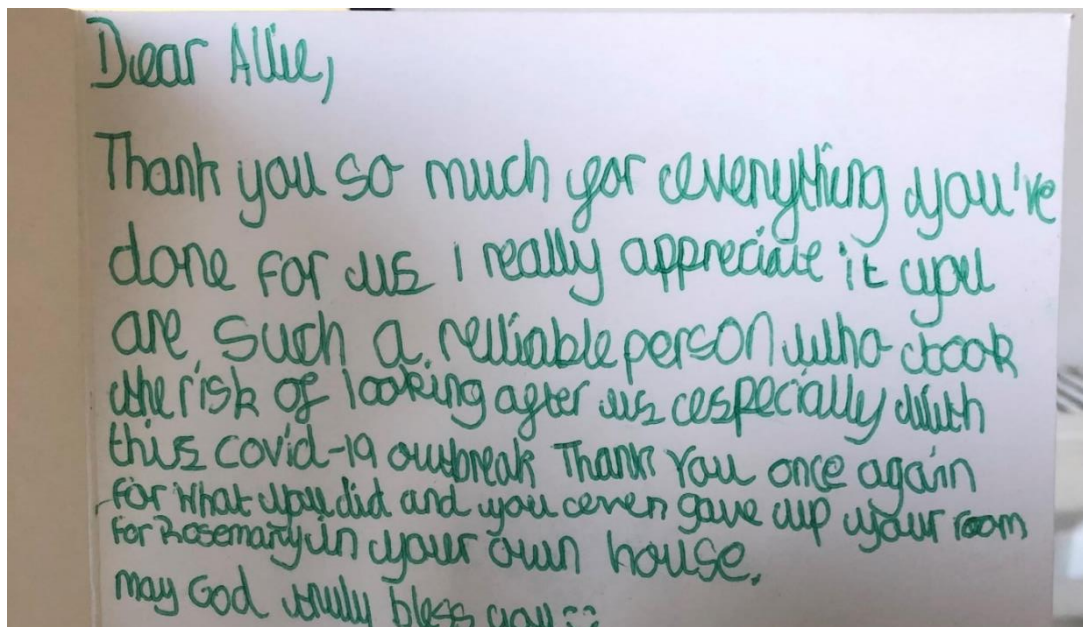 Dear Allie,
Thank you so much for everything you've
done for us I really appreciate it you
are such a relliable person who took
the risk of looking after us especially with
this covid-19 outbreak Thank You once again
for what you did and you even gave up your room
For Rosemary in your own house.
may God truly bless you :)